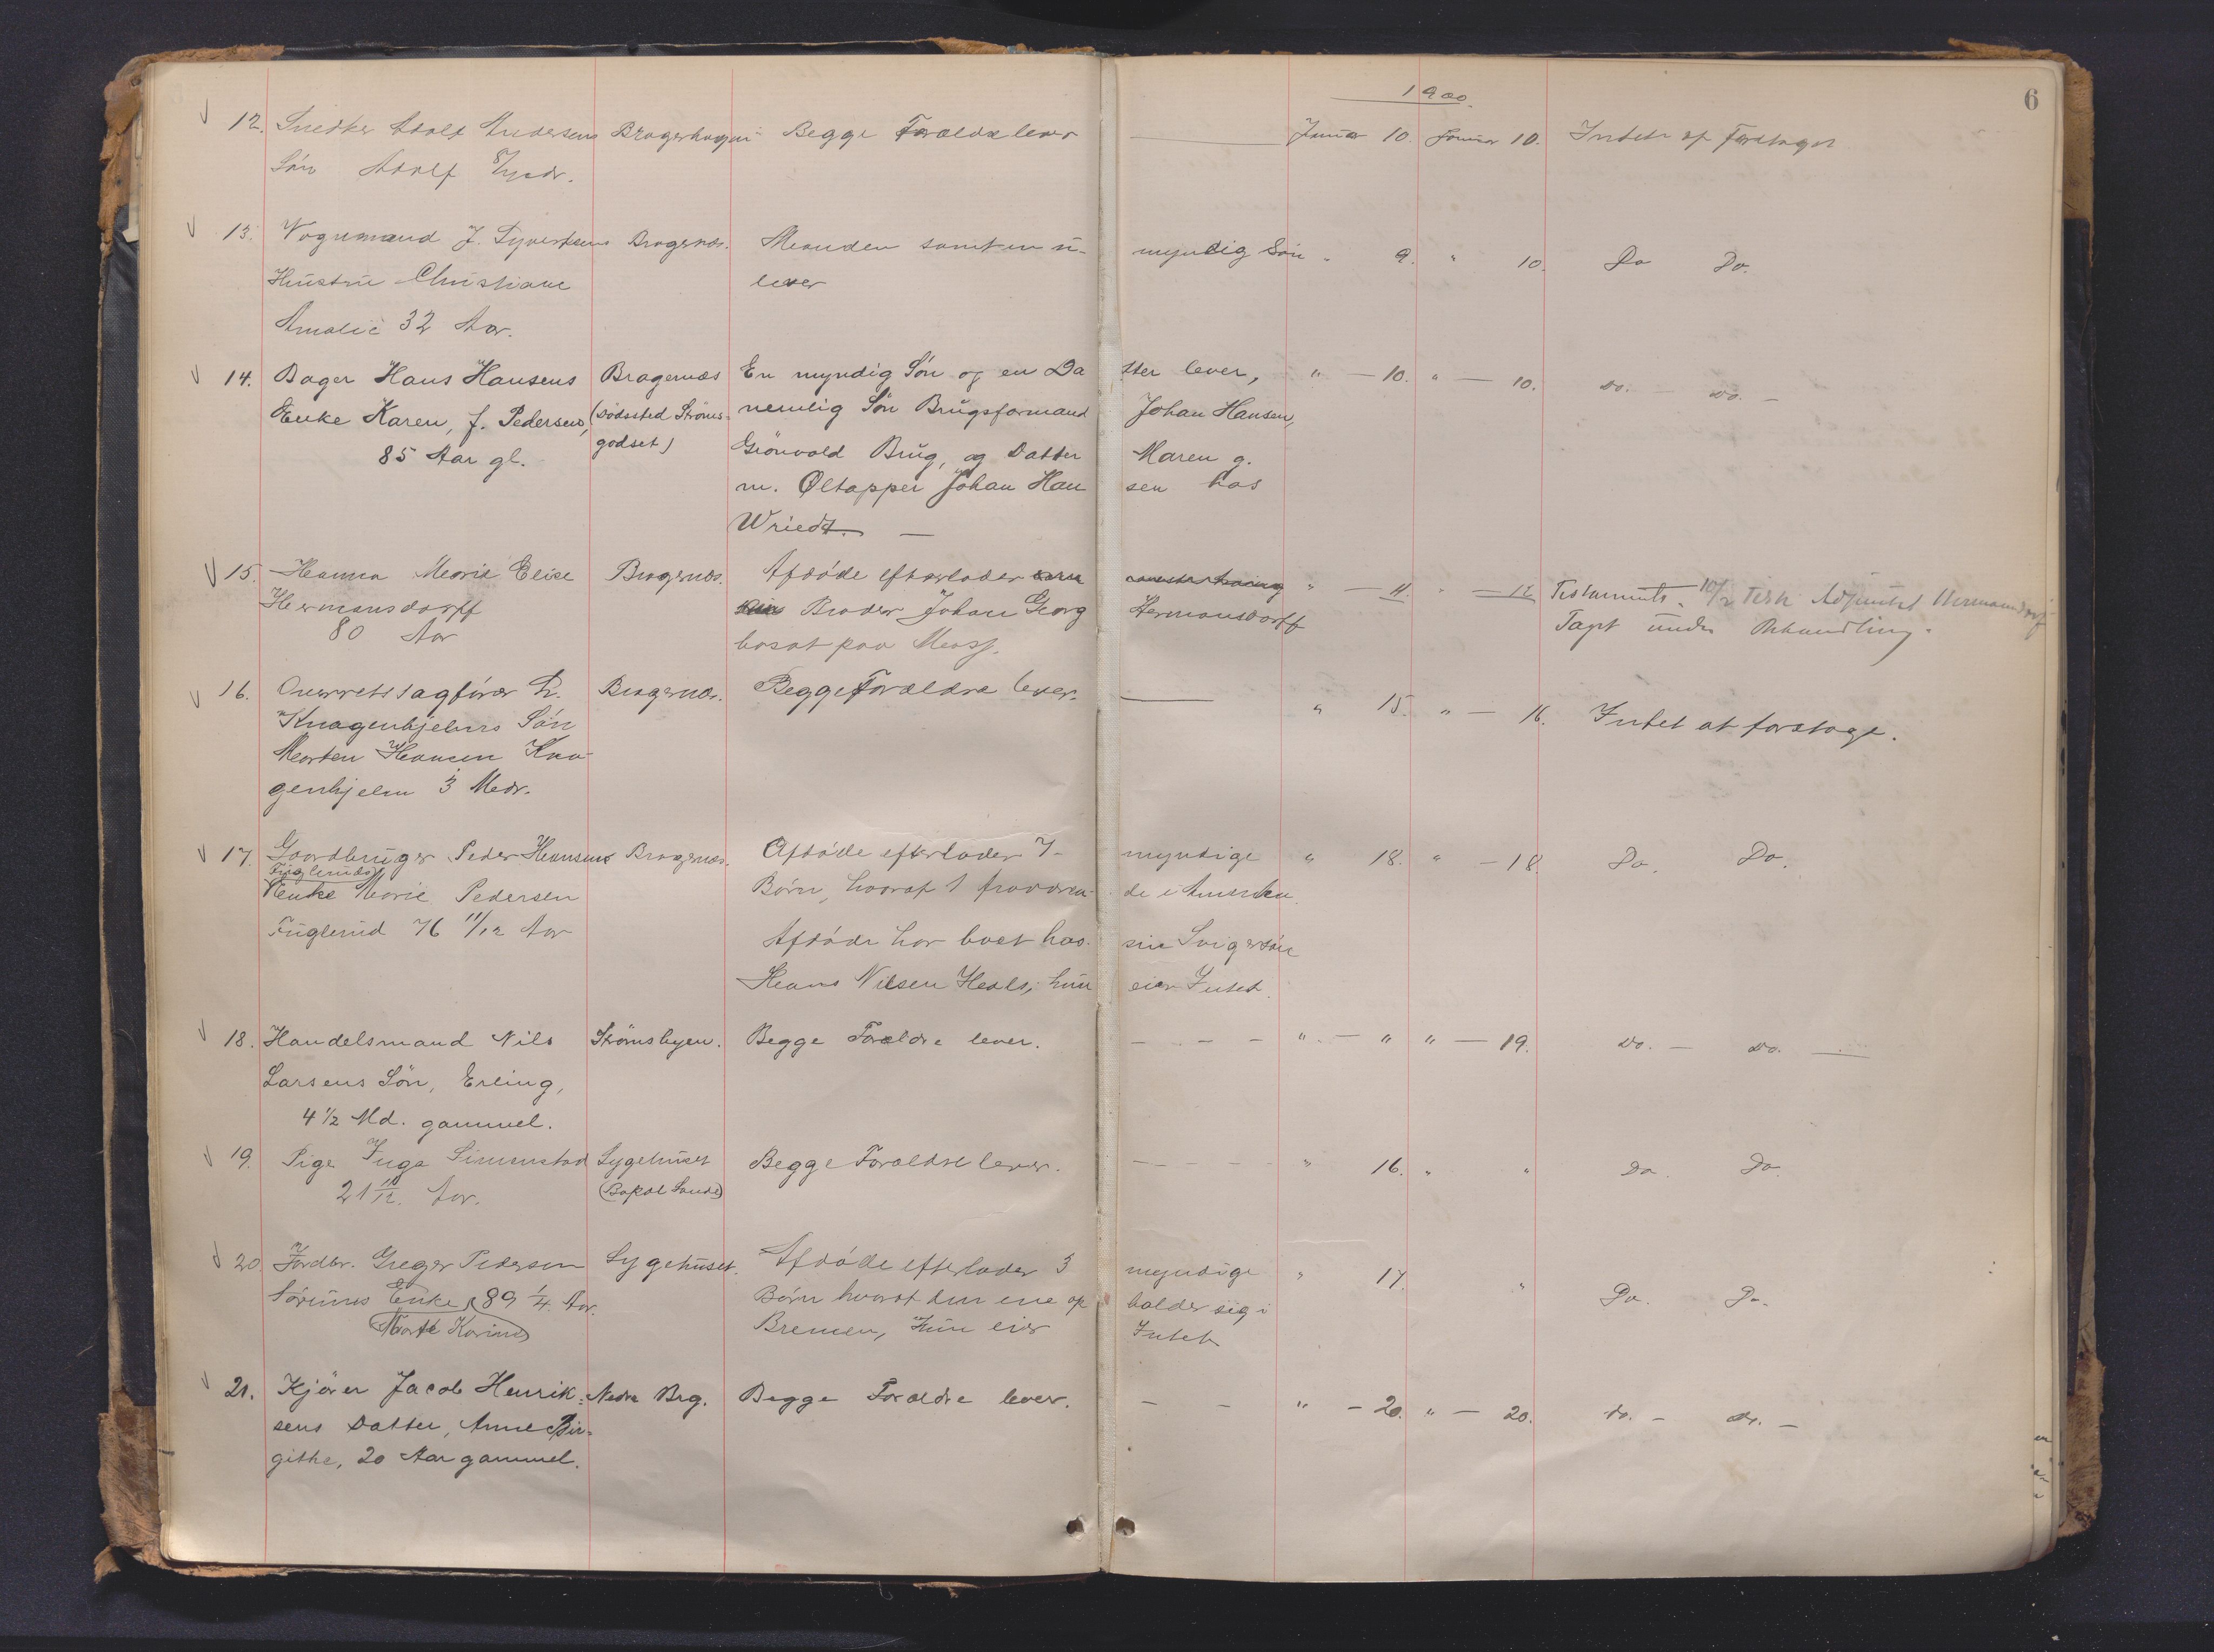 1900.
6
12. Snedker Adolf Andersens Bragerhagen Begge Forældre lever Januar 10. Januar 10. Intet at foretaget
Søn Adolf 8 Mdr.
13. Vognmand J. Syvertsens Bragernæs. Manden samt en u- myndig Søn " 9. " 10. Do Do.
Hustru Christiane lever
Amalie 32 Aar.
14. Bager Hans Hansens Bragernæs En myndig Søn og en Da tter lever, " — 10. " — 10. do. — do. —
Enke Karen, f. Pedersen, (Dødssted Strøms- nemlig Søn Brugsformand Johan Hansen,
85 Aar gl. godset) Grønvold Brug, og Datter Maren g.
m. Øltapper Johan Han sen hos
Wriedt. —
15. Hanna Marie Elise Bragernæs. Afdøde efterlader " — 11. " — 12. Testaments. 10/2 Test. Adjunkt Hermansdorf
Hermansdorff Broder Johan Georg Hermansdorff Tagt under Behandling.
80 Aar bosat paa Moss.
16. Overretssagfører Bragernæs. Begge Forældre lever. — " 15. " — 16. Intet at foretage.
Knagenhjelms Søn
Morten Hansen Kna-
genhjelm 3 Mdr.
17. Gaardbruger Peder Hansens Bragernæs. Afdøde efterlader 7- myndige " 18. " — 18. Do. Do.
Fuglerud
Enke Marie Pedersen Børn, hvoraf 1 fraværen- de i Amerika.
Fuglerud 76 11/12 Aar
Afdøde har boet hos sin Svigersøn
Hans Nilsen Hals; hun eier Intet.
18. Handelsmand Nils Strømsbyen. Begge Forældre lever. — — — " — " " — 19. do. — do. —
Larsens Søn, Erling,
4 1/2 Md. gammel.
19. Pige Inga Simenstad Sygehuset Begge Forældre lever. — — — — " 16. " " Do. Do.
21 11/12. Aar. (Bopæl Sande)
20 Jordbr. Greger Pedersen Sygehuset. Afdøde efterlader 3 myndige " 17. " Do. Do.
Sørums Enke, 89 1/4. Aar. Børn hvoraf den ene op holder sig i
Marte Karine Bremen, Hun eier Intet
21. Kjører Jacob Henrik- Nedre Brg. Begge Forældre lever. — — " — 20. " — 20. do. — do. —
sens Datter, Anne Bir-
githe, 20 Aar gammel.